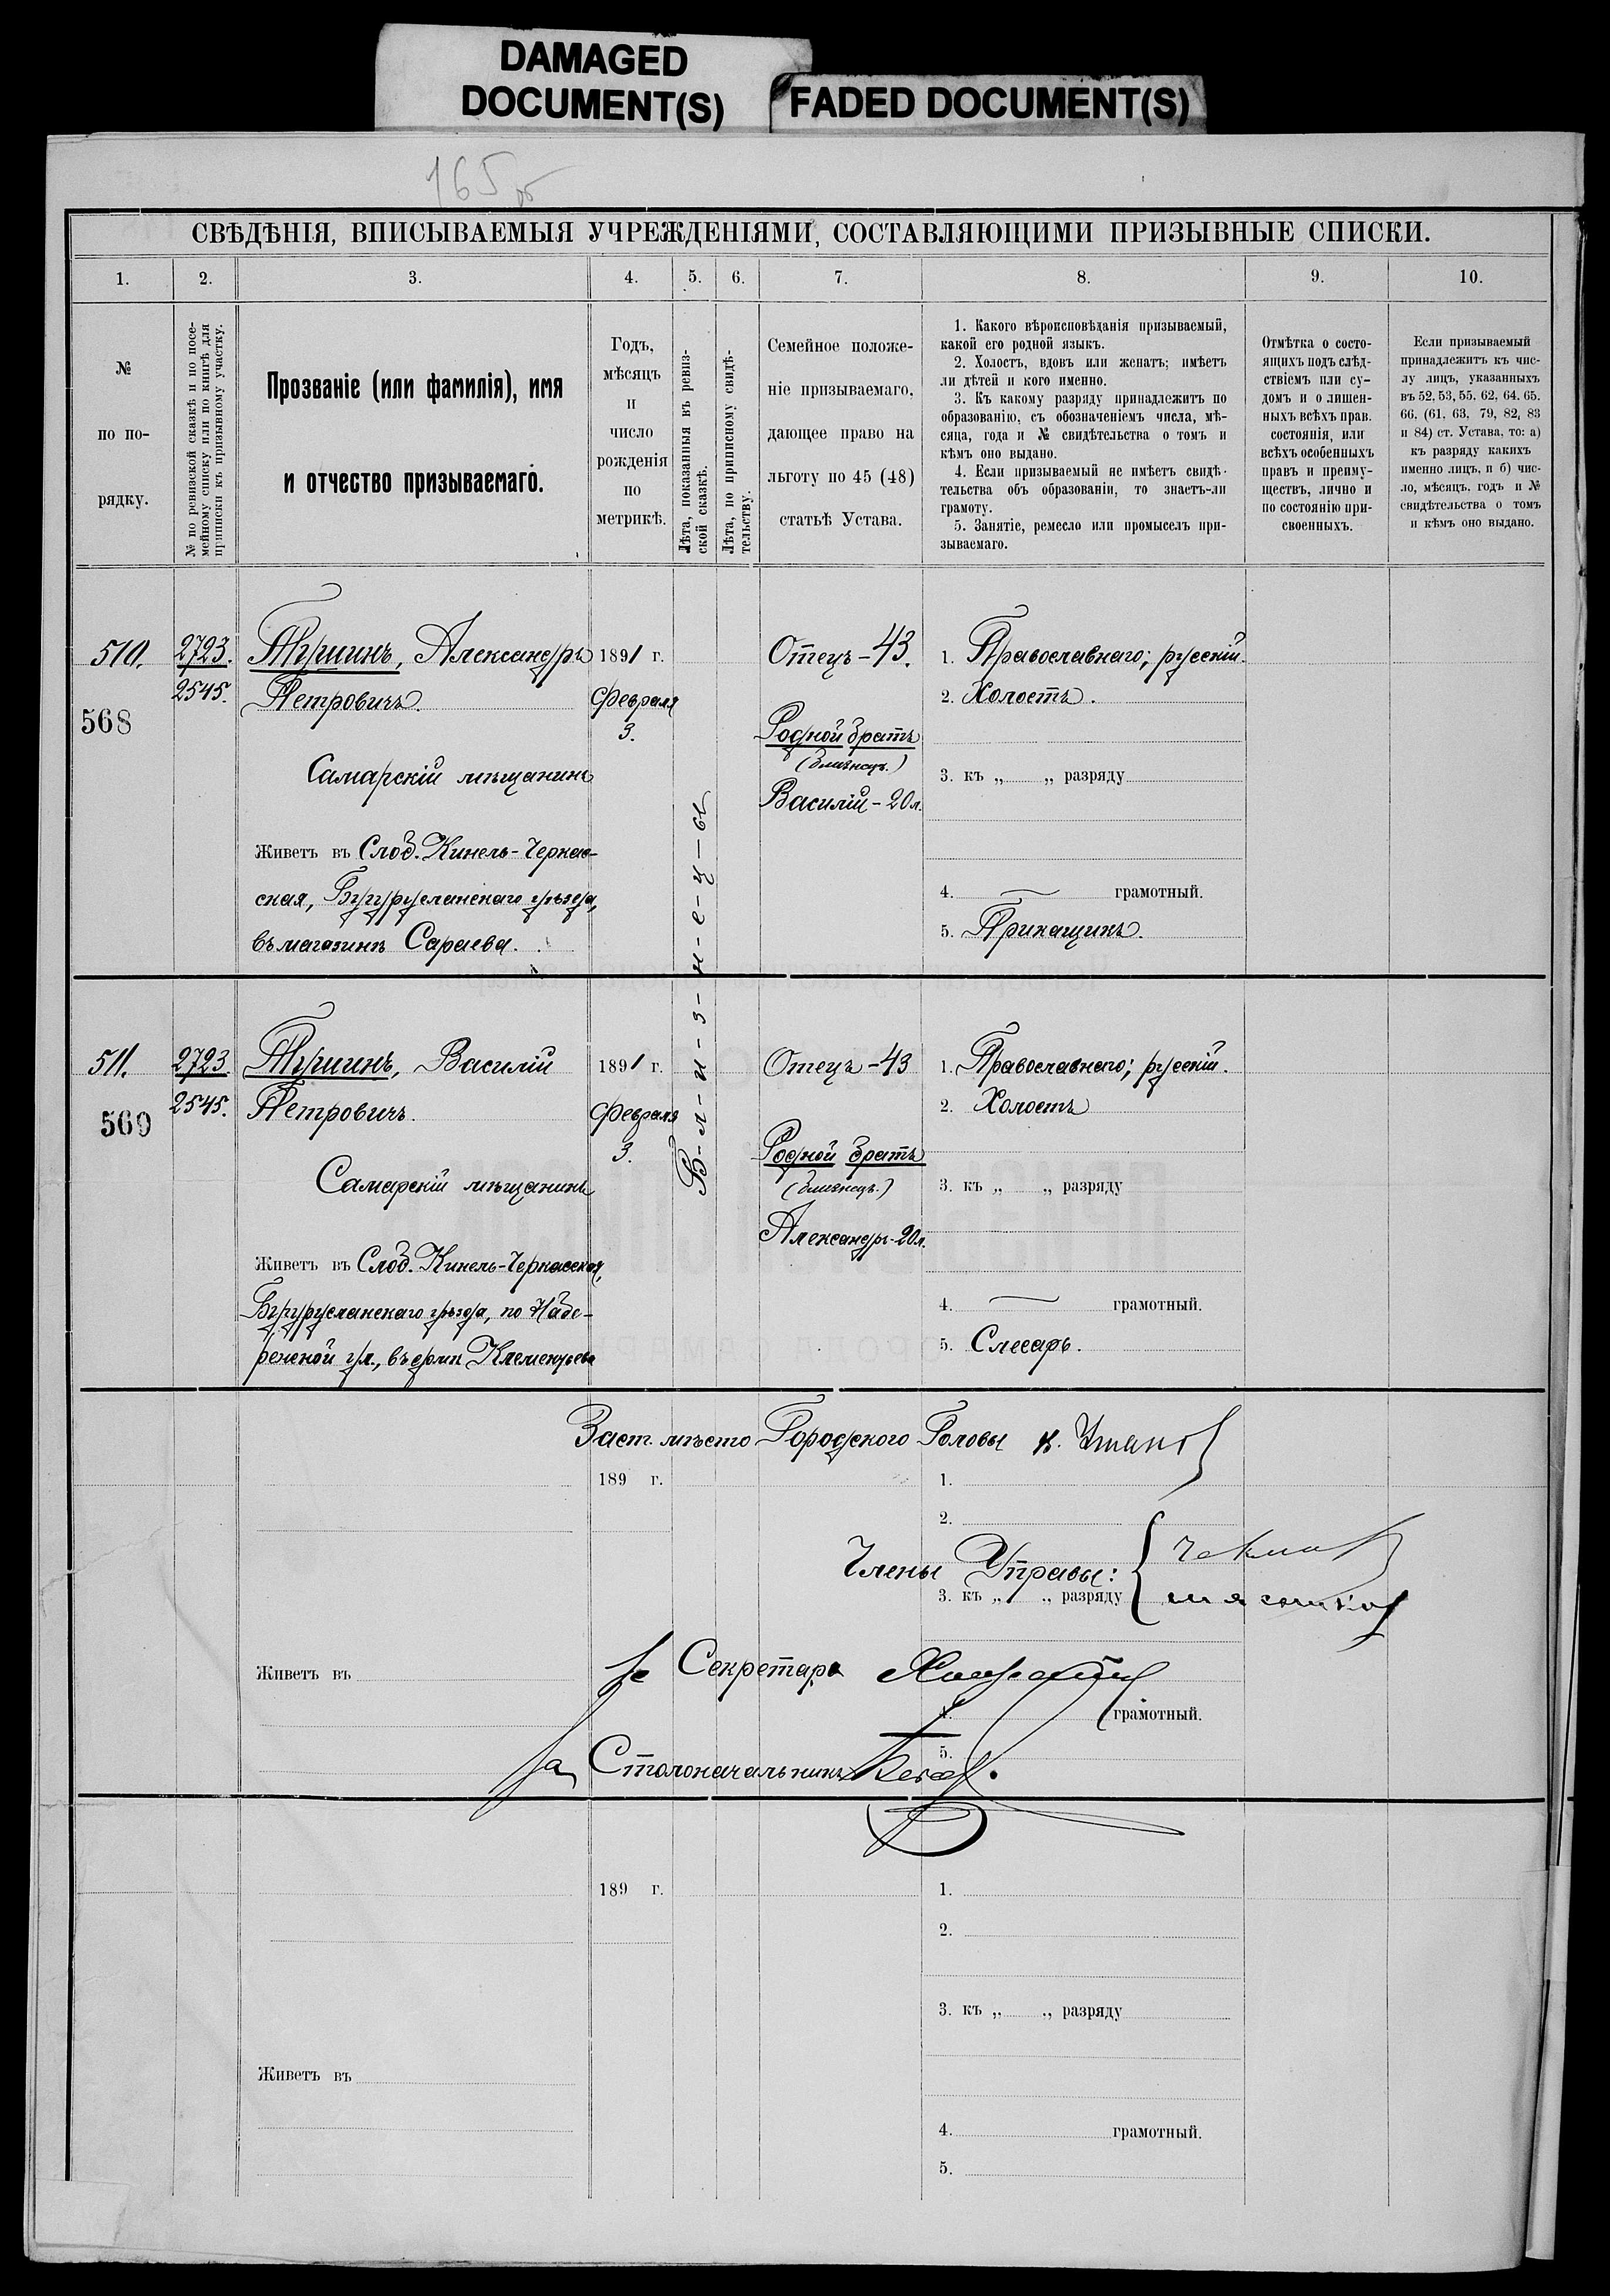 DAMAGED
DOCUMENT(S)
FADED DOCUMENT(S)
165 об
СВѢДѢНІЯ, ВПИСЫВАЕМЫЯ УЧРЕЖДЕНІЯМИ, СОСТАВЛЯЮЩИМИ ПРИЗЫВНЫЕ СПИСКИ.
1. 2. 3. 4. 5. 6. 7. 8. 9. 10.
№
по по-
рядку.
№ по ревизской сказкѣ и по посе-
мейному списку или по книгѣ для
приписки къ призывному участку.
Прозваніе (или фамилія), имя
и отчество призываемаго.
Годъ,
мѣсяцъ
и
число
рожденія
по
метрикѣ.
Лѣта, показанныя въ ревиз-
ской сказкѣ.
Лѣта, по приписному свидѣ-
тельству.
Семейное положе-
ніе призываемаго,
дающее право на
льготу по 45 (48)
статьѣ Устава.
1. Какого вѣроисповѣданія призываемый,
какой его родной языкъ.
2. Холостъ, вдовъ или женатъ; имѣетъ
ли дѣтей и кого именно.
3. Къ какому разряду принадлежитъ по
образованію, съ обозначеніемъ числа, мѣ-
сяца, года и № свидѣтельства о томъ и
кѣмъ оно выдано.
4. Если призываемый не имѣетъ свидѣ-
тельства объ образованіи, то знаетъ-ли
грамоту.
5. Занятіе, ремесло или промыселъ при-
зываемаго.
Отмѣтка о состо-
ящихъ подъ слѣд-
ствіемъ или су-
домъ и о лишен-
ныхъ всѣхъ прав.
состоянія, или
всѣхъ особенныхъ
правъ и преиму-
ществъ, лично и
по состоянію при-
своенныхъ.
Если призываемый
принадлежитъ къ чис-
лу лицъ, указанныхъ
въ 52, 53, 55, 62, 64, 65,
66, (61, 63, 79, 82, 83
и 84) ст. Устава, то: а)
къ разряду какихъ
именно лицъ, и б) чис-
ло, мѣсяцъ, годъ и №
свидѣтельства о томъ
и кѣмъ оно выдано.
510.
568
2723.
2545.
Александръ
Петровичъ.
Самарскій мѣщанинъ
Живетъ въ Слоб. Кинель-Черкас-
ская, Бугурусланскаго уѣзда,
въ магазинѣ Сараева.
1891 г.
Февраля
3.
Б-л-и-з-н-е-ц-ы
Отецъ - 43.
Родной братъ
(близнецъ.)
Василій - 20 л.
1. Православнаго; русскій.
2. Холостъ.
3. къ „ „ разряду
4. грамотный.
5. Прикащикъ.
511.
569
2723.
2545.
Василій
Петровичъ.
Самарскій мѣщанинъ
Живетъ въ Слоб. Кинель-Черкасская,
Бугурусланскаго уѣзда, по Набе-
режной ул., въ домѣ Клементьева
1891 г.
Февраля
3.
Отецъ - 43
Родной братъ
(близнецъ.)
Александръ - 20 л.
1. Православнаго; русскій.
2. Холостъ
3. къ „ „ разряду
4. грамотный.
5. Слесарь.
Заст. мѣсто Городского Головы
189 г.
1.
2.
Члены Управы:
3. къ „ „ разряду
Живетъ въ
Секретаря
4. грамотный.
5.
За Столоначальникъ
189 г.
1.
2.
3. къ „ „ разряду
Живетъ въ
4. грамотный.
5.